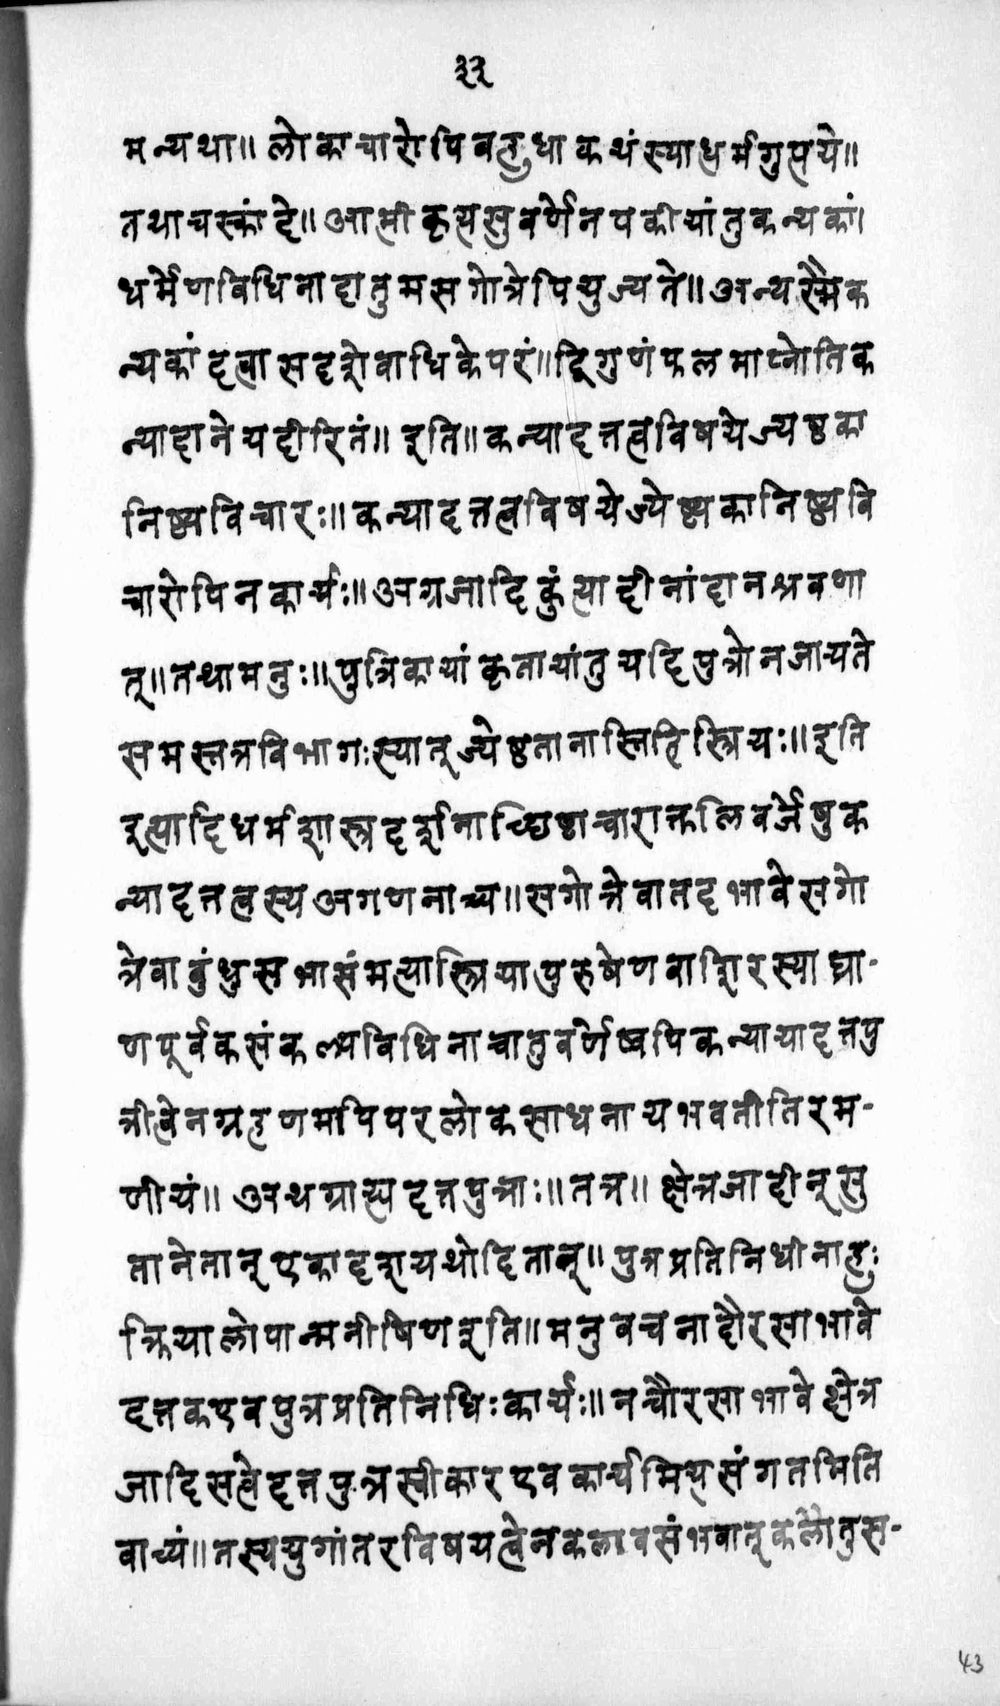 ३२
मन्यथा॥ लोकाचारोपि बहुधा कथं स्याधर्मगुप्तये॥
तथाचस्कांदे॥ आत्मीकृत्यसुवर्णेनपकीयांतुकन्यकां।
धर्मेणविधिनादातुमसगोत्रेपियुज्यते॥ अन्यस्मैक
न्यकांदत्वासदृशेवाधिकेपरं॥ द्विगुणंफलमाप्नोतिक
न्यादानेयदीरितं॥ इति॥ कन्यादत्तत्वविषयेज्यष्ठका
निष्ठ्यविचारः॥ कन्यादत्तत्वविषयेज्येष्ठ्यकानिष्ठ्यवि
चारोपिनकार्यः॥ अग्रजादिकुंत्यादीनांदानश्रवणा
त्॥ तथामनुः॥ पुत्रिकायांकृतायांतुयदिपुत्रोनजायते
समस्तत्रविभागःस्यात्ज्येष्ठतानास्तिहिस्त्रियः॥ इति
इत्यादिधर्मशास्त्रदर्शनाच्छिष्ठाचारात्कलिवर्जेषुक
न्यादत्तत्वस्यअगणनाच्च॥ सगोत्रेवातदभावेसगो
त्रेवाबुंधुसभासंमत्यास्त्रियापुरुषेणवाशिरस्याघ्रा-
णपूर्वकसंकल्पविधिनाचातुवर्णेष्वपिकन्यायादत्तपु
त्रीत्वेनग्रहणमपिपरलोकसाधनायभवतीतिरम-
णीयं॥ अथग्राह्यदत्तपुत्राः॥ तत्र॥ क्षेत्रजादीन्सु
तानेतान्एकादशयथोदितान्॥ पुत्रप्रतिनिधीनाहुः
क्रियालोपान्मनीषिणइति॥ मनुवचनादौरसाभावे
दत्तकएवपुत्रप्रतिनिधिःकार्यः॥ नचौरसाभावेक्षेत्र
जादिसत्वेदत्तपुत्रस्वीकारएवकार्यमित्यसंगतमिति
वाच्यं॥ तस्ययुगांतरविषयत्वेनकलावसंभवात्कलौतुस-
43